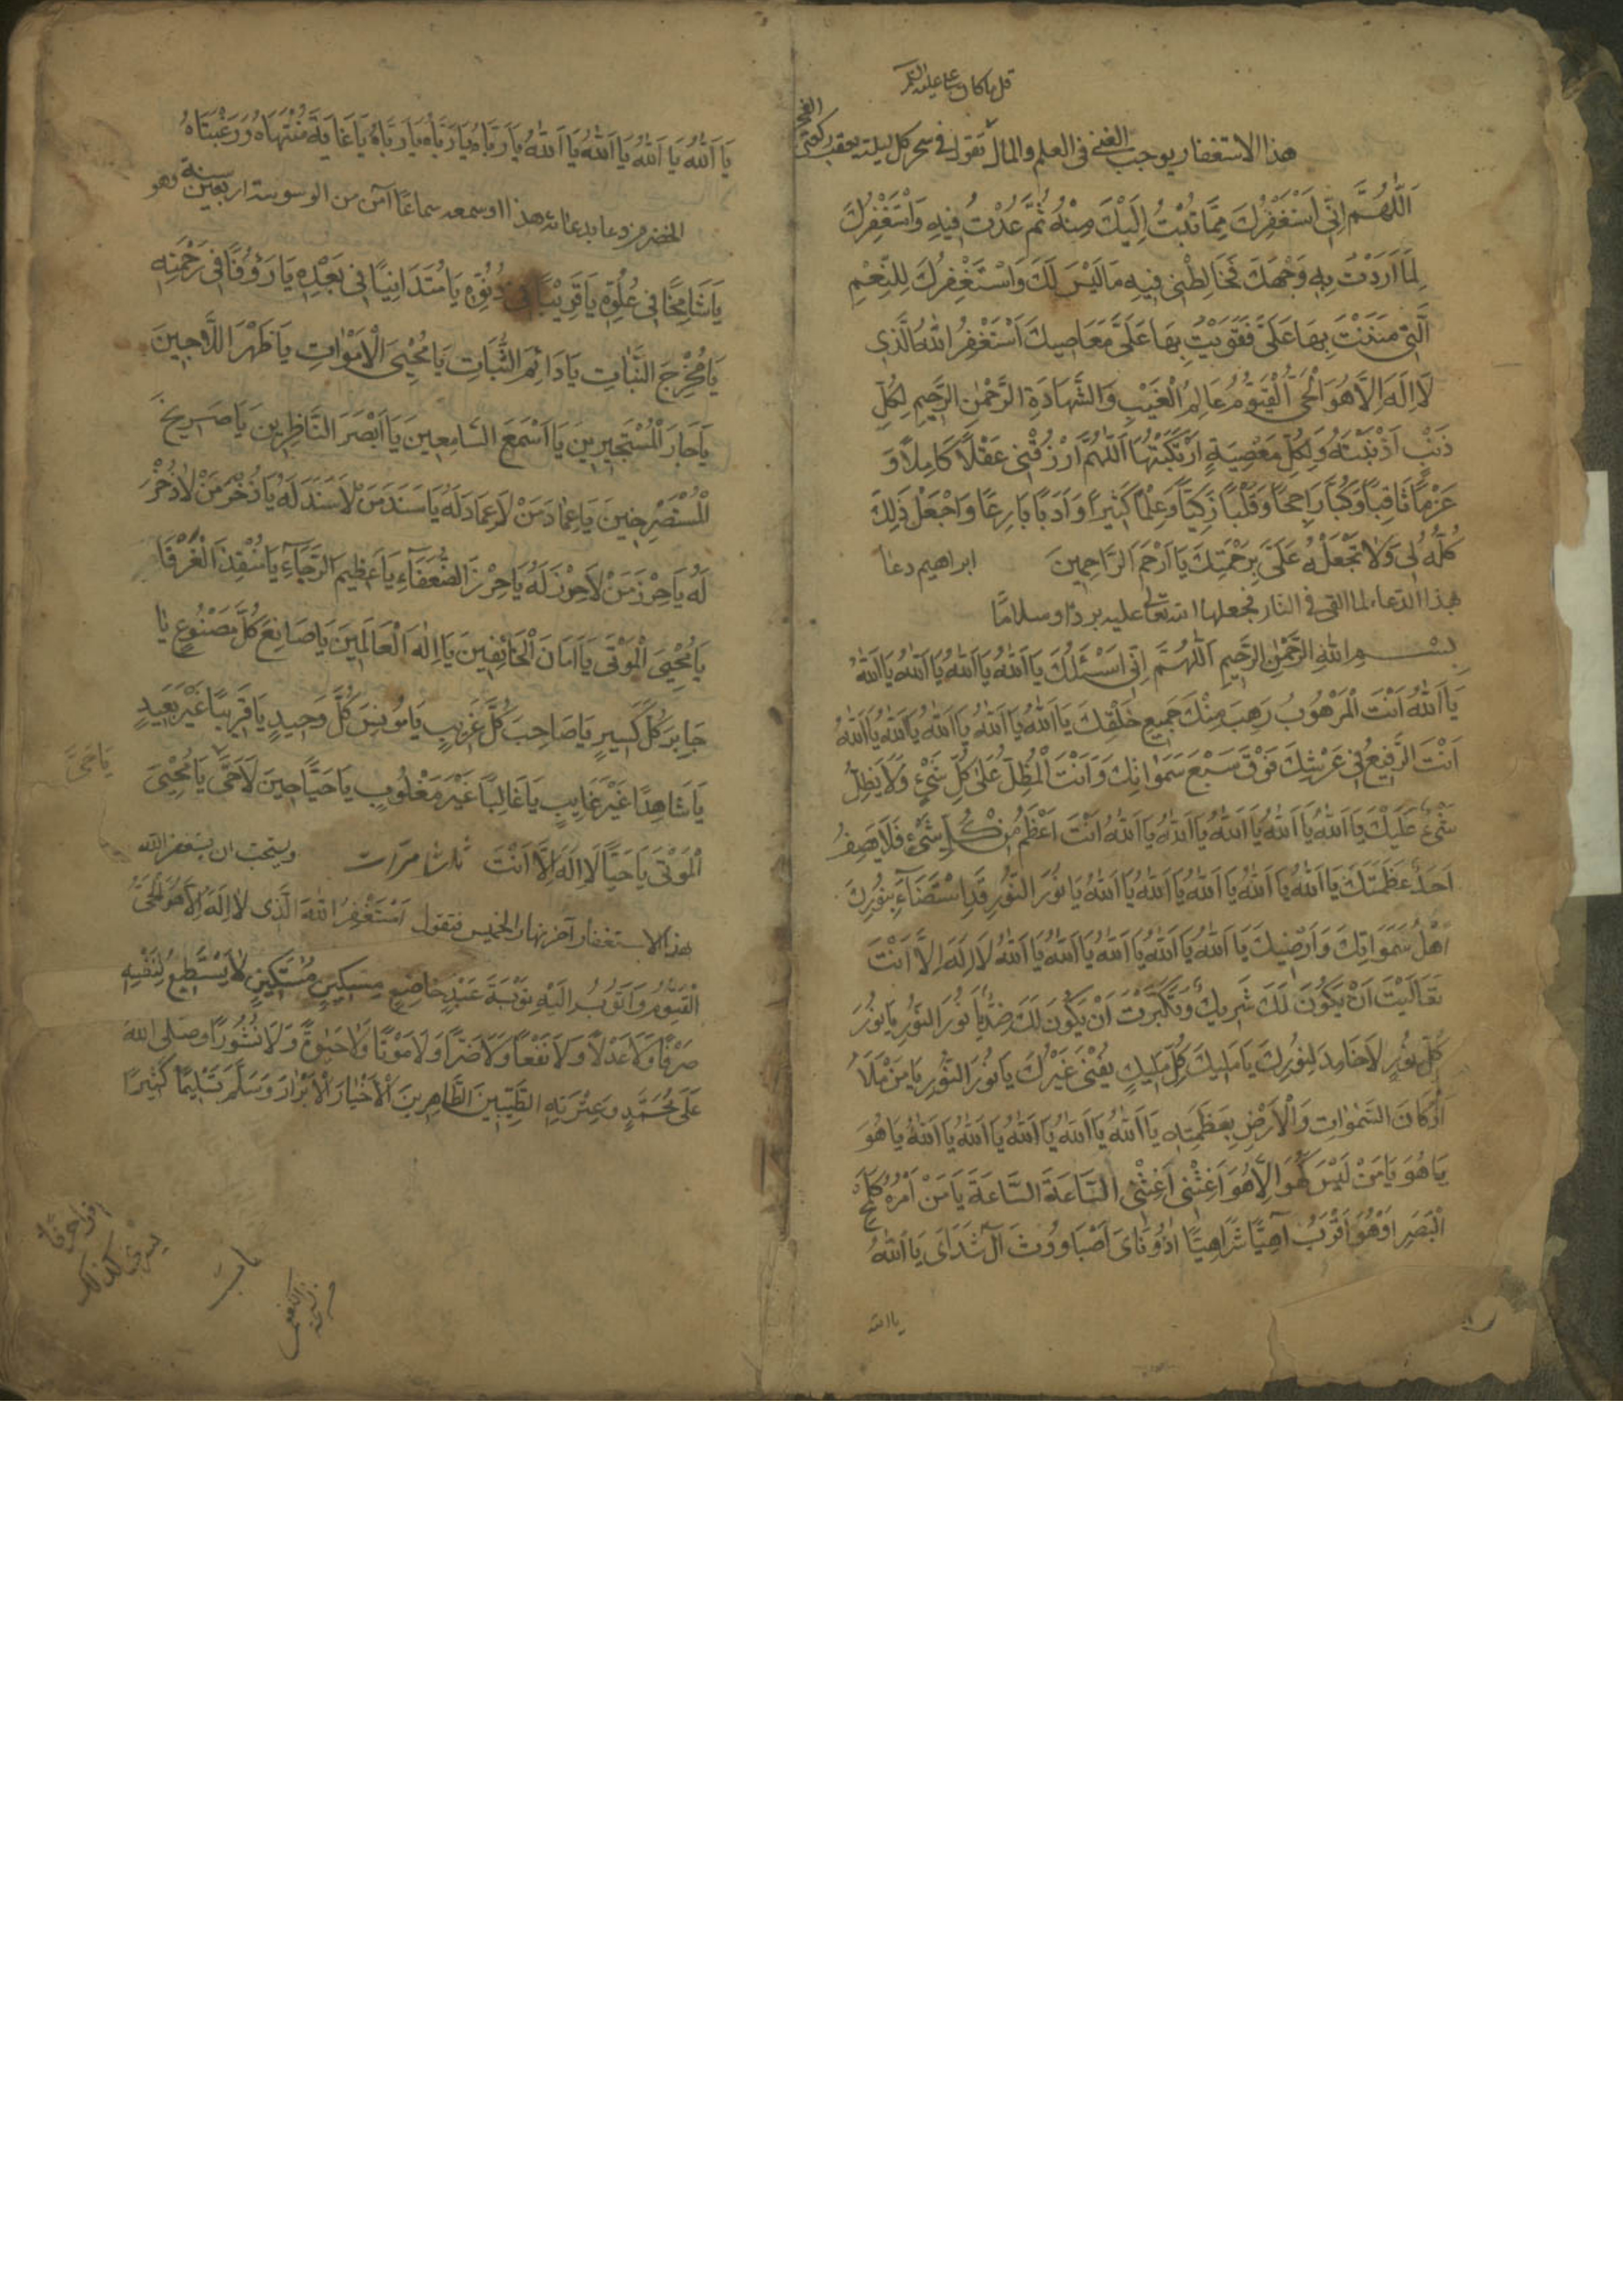 هذا الاستغفار يوجب الغنى فى العلم والمال تقوله فى سحر كل ليلة بعقب ركعتى الفجر
اَللّٰهُمَّ اِنِّى اَسْتَغْفِرُكَ مِمَّا تُبْتُ اِلَيْكَ مِنْهُ ثُمَّ عُدْتُ فِيهِ وَاَسْتَغْفِرُكَ
لِمَا اَرَدْتُ بِهِ وَجْهَكَ فَخَالَطَنِى فِيهِ مَا لَيْسَ لَكَ وَاَسْتَغْفِرُكَ لِلنِّعَمِ
الَّتِى مَنَنْتَ بِهَا عَلَىَّ فَقَوِيْتُ بِهَا عَلَى مَعَاصِيكَ اَسْتَغْفِرُ اللّٰهَ الَّذِى
لَا اِلٰهَ اِلَّا هُوَ الْحَىُّ الْقَيُّومُ عَالِمُ الْغَيْبِ وَالشَّهَادَةِ الرَّحْمٰنِ الرَّحِيمِ لِكُلِّ
ذَنْبٍ اَذْنَبْتُهُ وَلِكُلِّ مَعْصِيَةٍ ارْتَكَبْتُهَا اَللّٰهُمَّ ارْزُقْنِى عَقْلًا كَامِلًا وَ
عَزْمًا ثَاقِبًا وَلُبًّا رَاجِحًا وَقَلْبًا زَكِيًّا وَعِلْمًا كَثِيرًا وَاَدَبًا بَارِعًا وَاجْعَلْ ذٰلِكَ
كُلَّهُ لِى وَلَا تَجْعَلْهُ عَلَىَّ بِرَحْمَتِكَ يَا اَرْحَمَ الرَّاحِمِينَ ابراهيم دعا
بهذا الدعاء لما القى فى النار فجعلها الله تعالى عليه بردا وسلاما
بِسْمِ اللّٰهِ الرَّحْمٰنِ الرَّحِيمِ اَللّٰهُمَّ اِنِّى اَسْئَلُكَ يَا اَللّٰهُ يَا اَللّٰهُ يَا اَللّٰهُ يَا اَللّٰهُ
يَا اَللّٰهُ اَنْتَ الْمَرْهُوبُ رَهِبَ مِنْكَ جَمِيعُ خَلْقِكَ يَا اَللّٰهُ يَا اَللّٰهُ يَا اَللّٰهُ يَا اَللّٰهُ يَا اَللّٰهُ
اَنْتَ الرَّفِيعُ فِى عَرْشِكَ فَوْقَ سَبْعِ سَمٰوَاتِكَ وَاَنْتَ الْمُظِلُّ عَلٰى كُلِّ شَىْءٍ وَلَا يُظِلُّ
شَىْءٌ عَلَيْكَ يَا اَللّٰهُ يَا اَللّٰهُ يَا اَللّٰهُ يَا اَللّٰهُ يَا اَللّٰهُ اَنْتَ اَعْظَمُ مِنْ كُلِّ شَىْءٍ فَلَا يَصِفُ
اَحَدٌ عَظَمَتَكَ يَا اَللّٰهُ يَا اَللّٰهُ يَا اَللّٰهُ يَا اَللّٰهُ يَا اَللّٰهُ يَا نُورَ النُّورِ قَدِ اسْتَضَاءَ بِنُورِكَ
اَهْلُ سَمٰوَاتِكَ وَاَرْضِيكَ يَا اَللّٰهُ يَا اَللّٰهُ يَا اَللّٰهُ يَا اَللّٰهُ يَا اَللّٰهُ لَا اِلٰهَ اِلَّا اَنْتَ
تَعَالَيْتَ اَنْ يَكُونَ لَكَ شَرِيكٌ وَتَكَبَّرْتَ اَنْ يَكُونَ لَكَ ضِدٌّ يَا نُورَ النُّورِ يَا نُورَ
كُلِّ نُورٍ لَا خَامِدَ لِنُورِكَ يَا مَلِيكَ كُلِّ مَلِيكٍ يَفْنٰى غَيْرُكَ يَا نُورَ النُّورِ يَا مَنْ مَلَأَ
اَرْكَانَ السَّمٰوَاتِ وَالْاَرْضِ بِعَظَمَتِهِ يَا اَللّٰهُ يَا اَللّٰهُ يَا اَللّٰهُ يَا اَللّٰهُ يَا اَللّٰهُ يَا هُوَ
يَا هُوَ يَا مَنْ لَيْسَ هُوَ اِلَّا هُوَ اَغِثْنِى اَغِثْنِى السَّاعَةَ السَّاعَةَ يَا مَنْ اَمْرُهُ كَلَمْحِ
الْبَصَرِ اَوْ هُوَ اَقْرَبُ اَهِيًّا شَرَاهِيًّا اَذُونَاىَ اَصْبَاوُوثَ آلَ شَدَاىَ يَا اَللّٰهُ
يا الله
يَا اَللّٰهُ يَا اَللّٰهُ يَا اَللّٰهُ يَا اَللّٰهُ يَا رَبَّاهُ يَا رَبَّاهُ يَا رَبَّاهُ يَا غَايَةَ مُنْتَهَاهُ وَرَغْبَتَاهُ
الخضر من دعا بدعائه هذا او سمعه سماعا آمن من الوسوسة اربعين سنة وهو
يَا شَامِخًا فِى عُلُوِّهِ يَا قَرِيبًا فِى دُنُوِّهِ يَا مُتَدَانِيًا فِى بُعْدِهِ يَا رَؤُوفًا فِى رَحْمَتِهِ
يَا مُخْرِجَ النَّبَاتِ يَا دَائِمَ الثَّبَاتِ يَا مُحْيِىَ الْاَمْوَاتِ يَا ظَهْرَ اللَّاجِينَ
يَا جَارَ الْمُسْتَجِيرِينَ يَا اَسْمَعَ السَّامِعِينَ يَا اَبْصَرَ النَّاظِرِينَ يَا صَرِيخَ
الْمُسْتَصْرِخِينَ يَا عِمَادَ مَنْ لَا عِمَادَ لَهُ يَا سَنَدَ مَنْ لَا سَنَدَ لَهُ يَا ذُخْرَ مَنْ لَا ذُخْرَ
لَهُ يَا حِرْزَ مَنْ لَا حِرْزَ لَهُ يَا حِرْزَ الضُّعَفَاءِ يَا عَظِيمَ الرَّجَاءِ يَا مُنْقِذَ الْغَرْقٰا
يَا مُحْيِىَ الْمَوْتٰى يَا اَمَانَ الْخَائِفِينَ يَا اِلٰهَ الْعَالَمِينَ يَا صَانِعَ كُلِّ مَصْنُوعٍ يَا
جَابِرَ كُلِّ كَسِيرٍ يَا صَاحِبَ كُلِّ غَرِيبٍ يَا مُونِسَ كُلِّ وَحِيدٍ يَا قَرِيبًا غَيْرَ بَعِيدٍ
يَا شَاهِدًا غَيْرَ غَايِبٍ يَا غَالِبًا غَيْرَ مَغْلُوبٍ يَا حَيًّا حِينَ لَا حَىَّ يَا مُحْيِىَ
يَا حَىُّ
الْمَوْتٰى يَا حَيًّا لَا اِلٰهَ اِلَّا اَنْتَ ثلاث مرات ويستحب ان يستغفر الله
هذا الاستغفار آخر نهار الخميس فتقول اَسْتَغْفِرُ اللّٰهَ الَّذِى لَا اِلٰهَ اِلَّا هُوَ الْحَىُّ
الْقَيُّومُ وَاَتُوبُ اِلَيْهِ تَوْبَةَ عَبْدٍ خَاضِعٍ مِسْكِينٍ مُسْتَكِينٍ لَا يَسْتَطِيعُ لِنَفْسِهِ
صَرْفًا وَلَا عَدْلًا وَلَا نَفْعًا وَلَا ضَرًّا وَلَا مَوْتًا وَلَا حَيٰوةً وَلَا نُشُورًا وصلى الله
عَلٰى مُحَمَّدٍ وَعِتْرَتِهِ الطَّيِّبِينَ الطَّاهِرِينَ الْاَخْيَارِ الْاَبْرَارِ وَسَلَّمَ تَسْلِيمًا كَثِيرًا